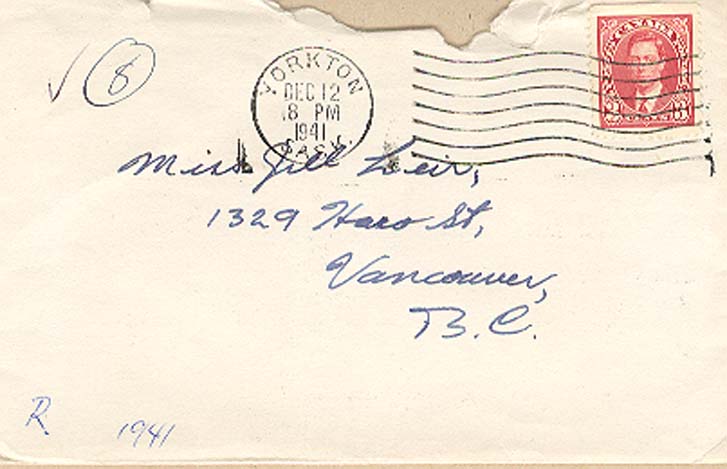 ✓ 8
YORKTON
DEC 12
18 PM
1941
SASK.
CANADA
3 3
Miss Jill Leir,
1329 Haro St,
Vancouver,
B.C.
R. 1941